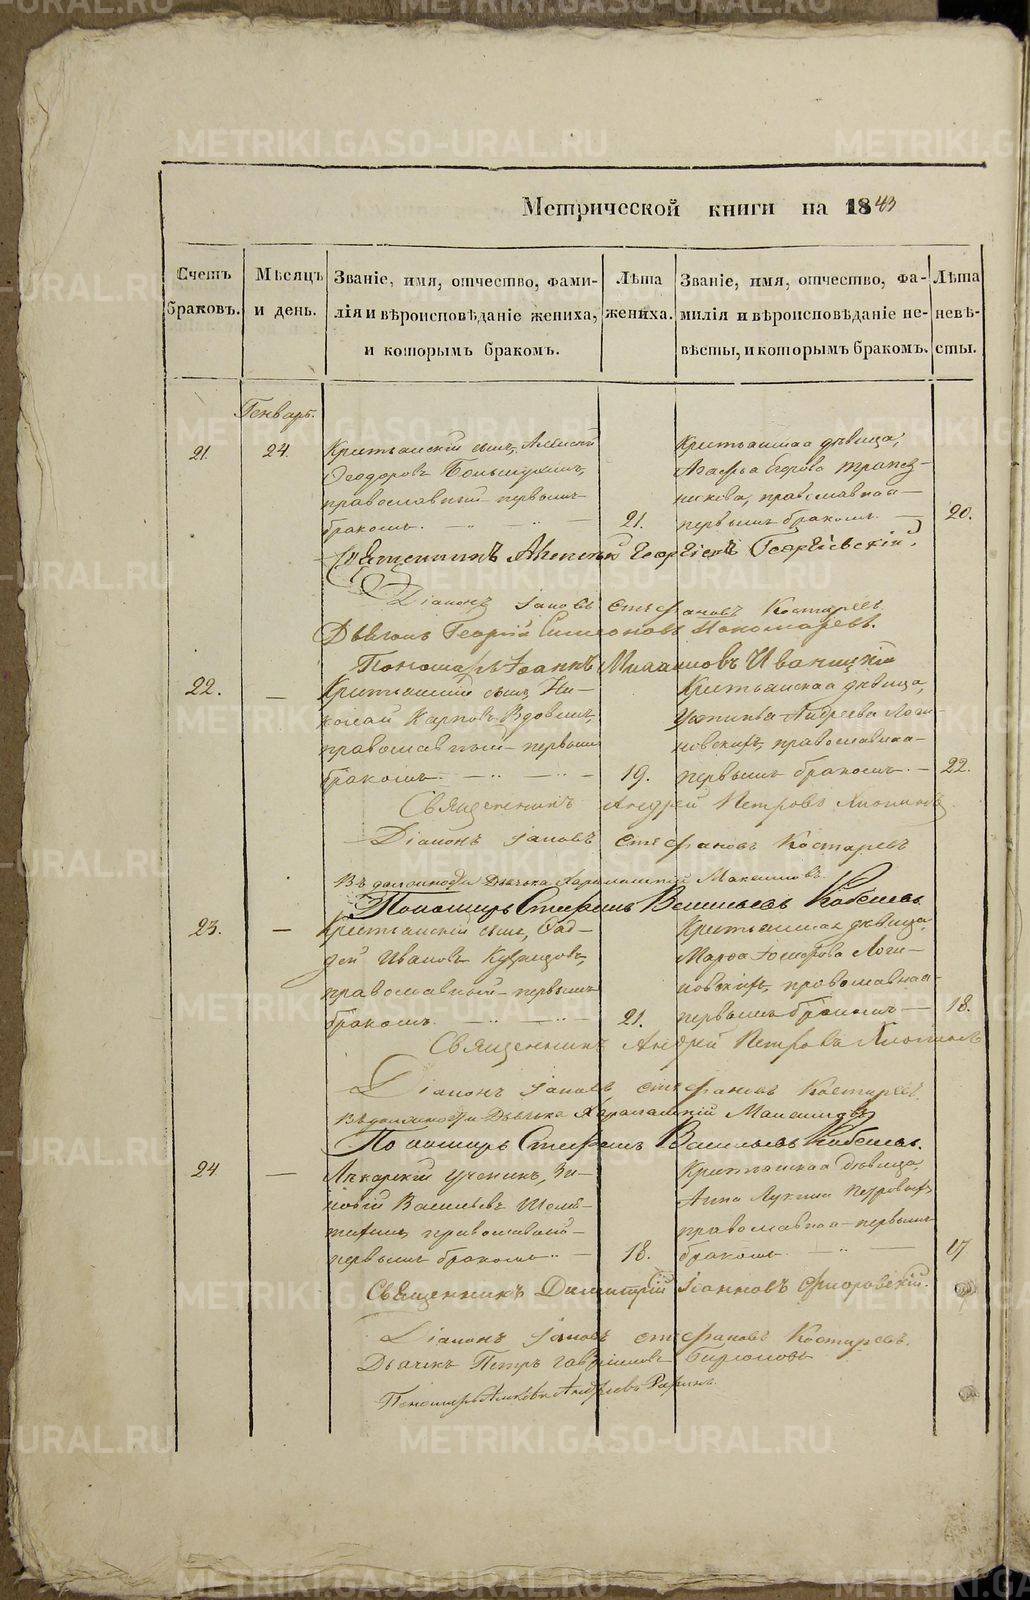 Метрической книги на 1843
Счетъ браковъ.
Мѣсяцъ и день.
Званіе, имя, отчество, фами-
лія и вѣроисповѣданіе жениха,
и которымъ бракомъ.
Лѣта жениха.
Званіе, имя, отчество, фа-
милія и вѣроисповѣданіе не-
вѣсты, и которымъ бракомъ.
Лѣта невѣ-
сты.
Генварь.
21.
24.
Крестьянскій сынъ, Алексѣй
Ѳеодоровъ
православный первымъ
бракомъ.
21.
Крестьянская дѣвица,
Агафья Егорова Трапез-
никова, православная
первымъ бракомъ.
20.
Священникъ Алексѣй Георгіевъ Георгіевскій.
Діаконъ Іаковъ Стефановъ Костаревъ
Дьячокъ Георгій Симеоновъ Пономаревъ.
Пономарь Іоаннъ Михаиловъ Иваницкій
22.
—
Крестьянскій сынъ, Ни-
колай Карповъ Вдовинъ,
православный первымъ
бракомъ.
19.
Крестьянская дѣвица,
Устинья Андреева Логи-
новскихъ, православная
первымъ бракомъ.
22.
Священникъ Андрей Петровъ
Діаконъ Іаковъ Стефановъ Костаревъ
Въ должности Дьячка Харалампій Максимовъ
Пономарь Стефанъ Васильевъ Кобелевъ
23.
—
Крестьянскій сынъ, Фад-
дей Ивановъ
православный первымъ
бракомъ.
21.
Крестьянская дѣвица,
Марѳа Логи-
новскихъ, православная
первымъ бракомъ
18.
Священникъ Андрей Петровъ
Діаконъ Іаковъ Стефановъ Костаревъ
Въ должности Дьячка Харалампій Максимовъ
Пономарь Стефанъ Васильевъ Кобелевъ.
24
—
Лѣкарскій ученикъ, Зи-
новій Васильевъ
православный
первымъ бракомъ
18.
Крестьянская дѣвица,
Анна Лукина Петровыхъ
православная первымъ
бракомъ
17.
Священникъ Димитрій Іоанновъ Флоровскій.
Діаконъ Іаковъ Стефановъ Костаревъ.
Дьячекъ Петръ Гавриловъ
Пономарь Яковъ Андреевъ
METRIKI.GASO-URAL.RU